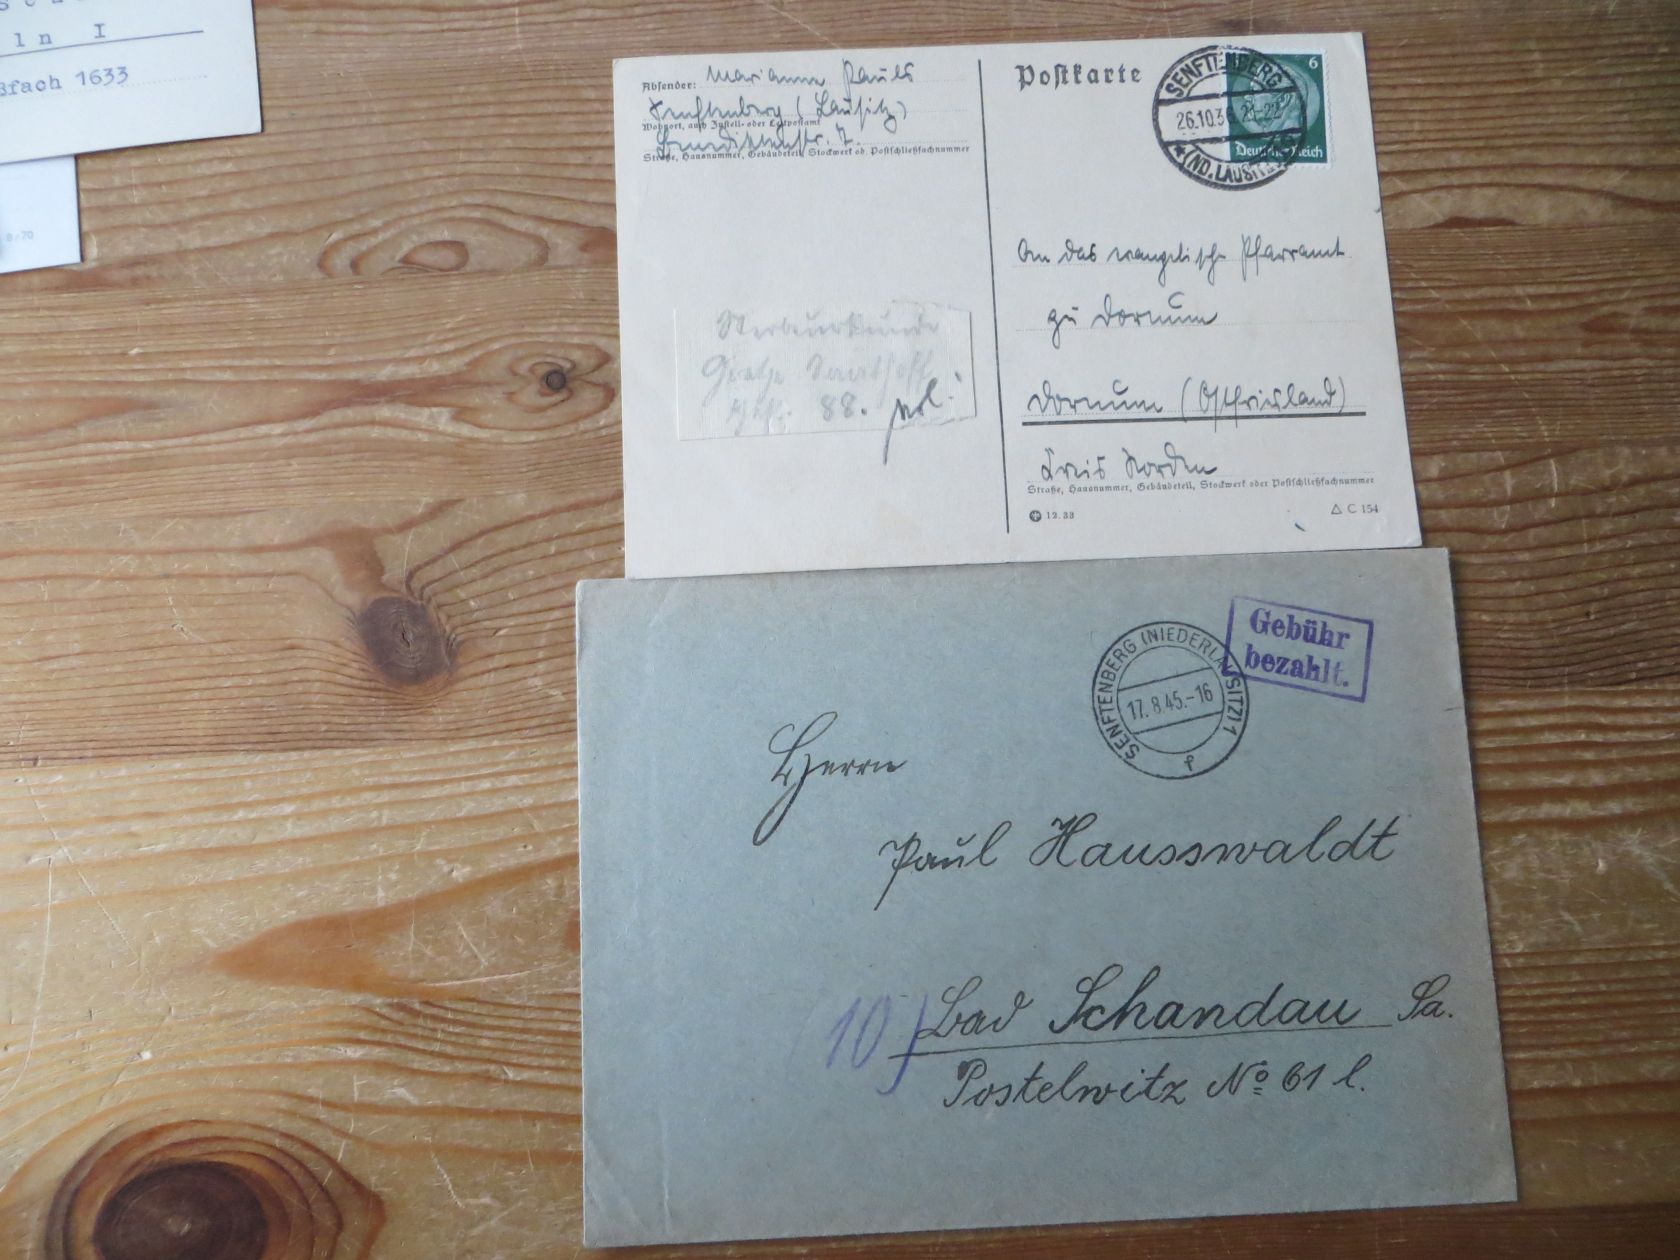 ln I
ßfach 1633
8/70
Absender: Marianne Pauls
Senftenberg (Lausitz)
Wohnort, auch Zustell- oder Leitpostamt
str. 7.
Straße, Hausnummer, Gebäudeteil, Stockwerk od. Postschließfachnummer
Sterbeurkunde
Gretje
88.
Postkarte
SENFTENBERG
26.10.3 21-22
(ND. LAUSITZ)
6
Deutsches Reich
An das evangelische Pfarramt
zu Dornum
Dornum (Ostfriesland)
Kreis Norden
Straße, Hausnummer, Gebäudeteil, Stockwerk oder Postschließfachnummer
12.33
C 154
Gebühr
bezahlt.
SENFTENBERG (NIEDERLAUSITZ) 1
17.8.45.-16
f
Herrn
Paul Hausswaldt
(10) Bad Schandau Sa.
Postelwitz No 61 l.